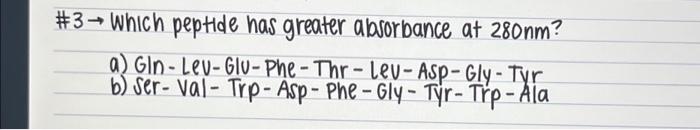 #3→ Which peptide has greater absorbance at 280nm?
a) Gln - Leu - Glu - Phe - Thr - Leu - Asp - Gly - Tyr
b) Ser - Val - Trp - Asp - Phe - Gly - Tyr - Trp - Ala